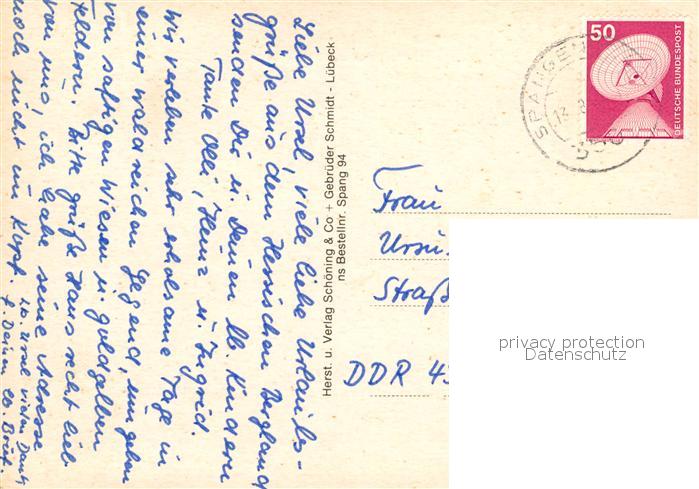 Liebe Ursel, viele liebe Urlaubs-
grüße aus dem Hessischen Bergland
senden Dir u. Deinen lb. Kindern
Tante Olli, Heinz u. Ingrid.
Wir verleben sehr erholsame Tage in
einer waldreichen Gegend, umgeben
von saftigen Wiesen u. goldgelben
Feldern. Bitte grüße Hans recht lieb
von uns, ich habe seine Adresse
noch nicht im Kopf.
Lb. Ursel vielen Dank
f. Deinen lb. Brief.
Herst. u. Verlag Schöning & Co + Gebrüder Schmidt - Lübeck
ns Bestellnr. Spang 94
50
DEUTSCHE BUNDESPOST
Frau
Straß
DDR
privacy protection
Datenschutz